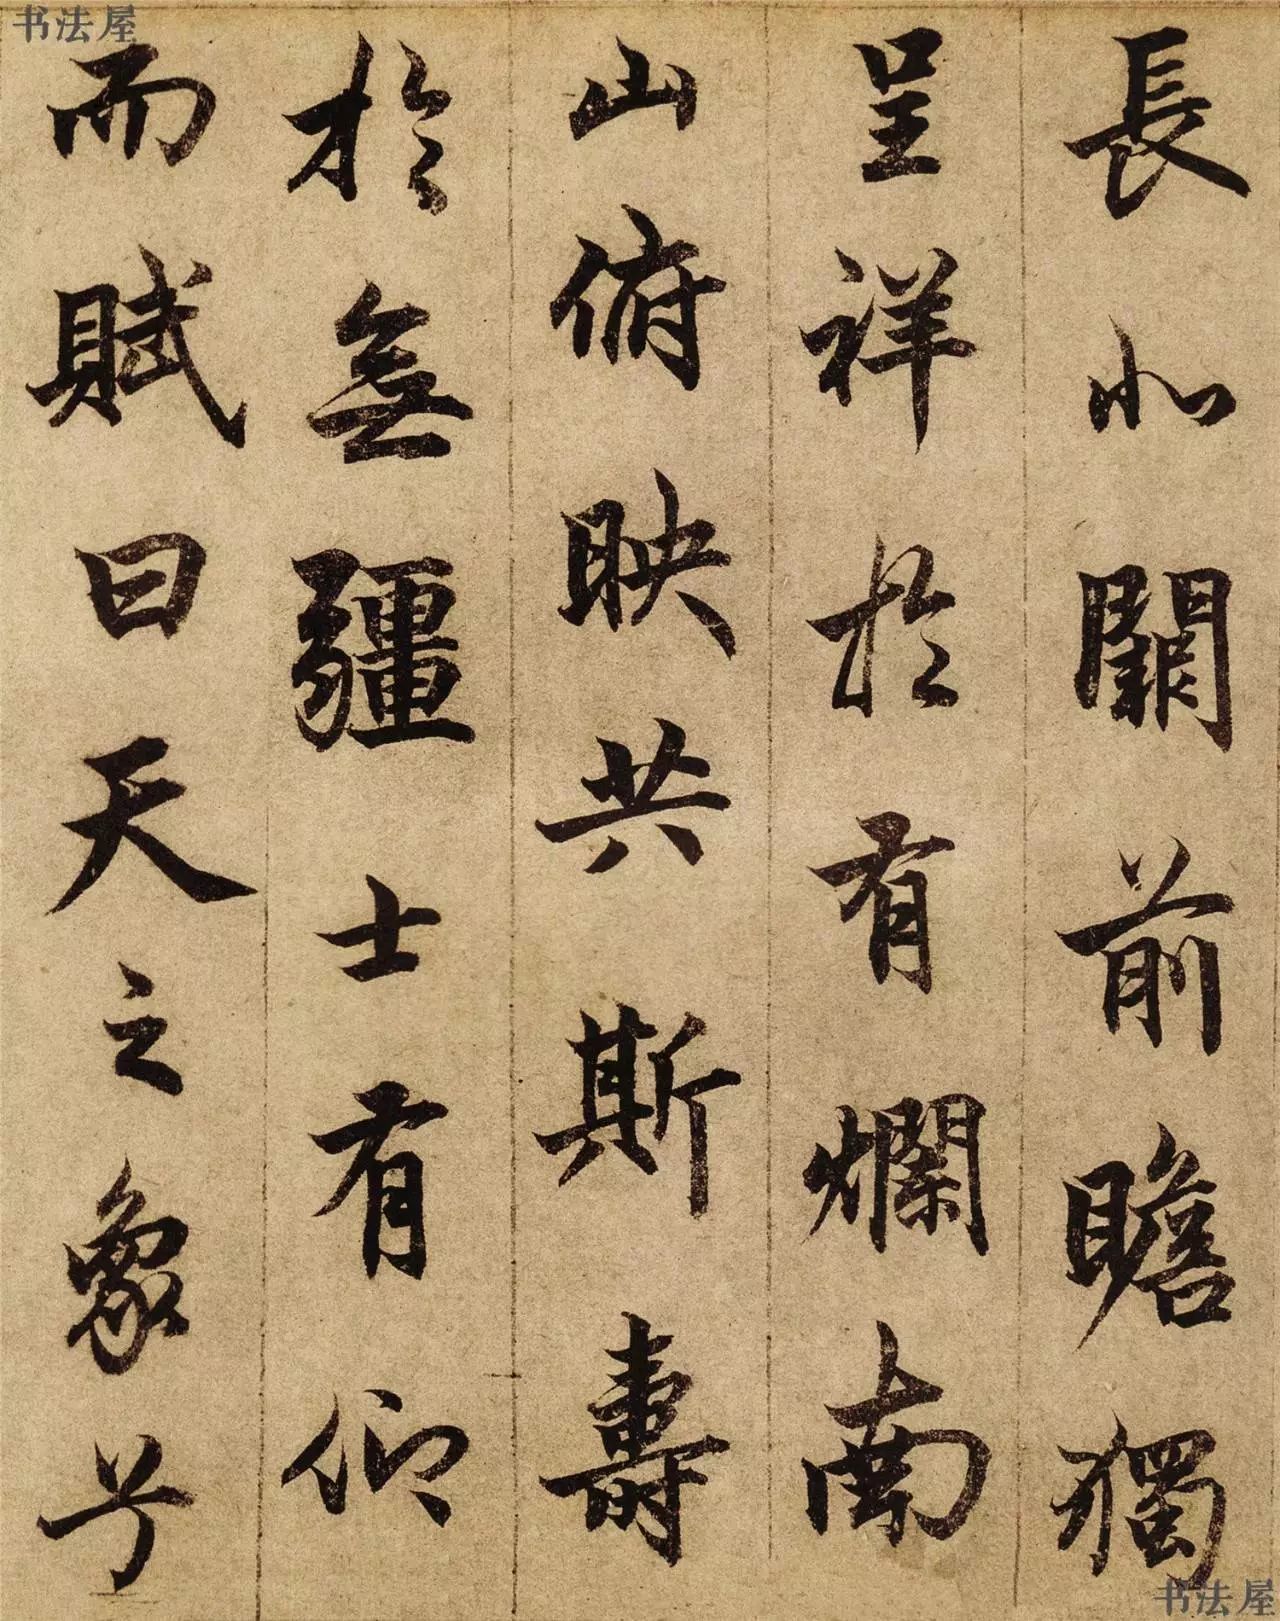 书法屋
長北闕前瞻獨
呈祥於有爛南
山俯映共斯壽
於無疆士有仰
而賦曰天之象兮
书法屋